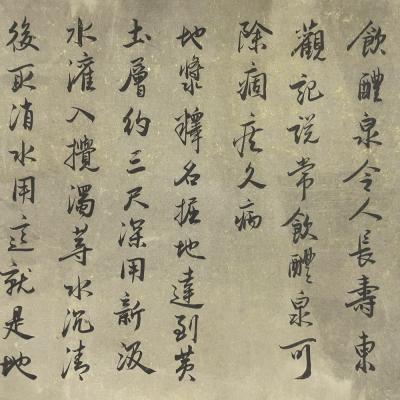 飲醴泉令人長壽東
觀記說常飲醴泉可
除痼疾久病
地漿釋名掘地達到黃
土層約三尺深用新汲
水灌入攪濁等水沉清
後取消水用這就是地